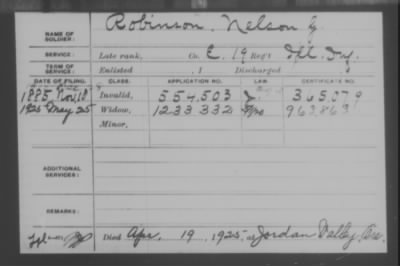 NAME OF SOLDIER: Robinson, Nelson G.
SERVICE: Late rank, Co. E, 19 Reg't Ill. Inf.
TERM OF SERVICE: Enlisted , 1 Discharged
DATE OF FILING. CLASS. APPLICATION NO. LAW. CERTIFICATE NO.
1885 Nov. 18 Invalid, 554,503 365,079
1925 May 25 Widow, 1233332 963,863
Minor,
ADDITIONAL SERVICES:
REMARKS:
Died Apr. 19, 1925, at Jordan Valley, Ore.